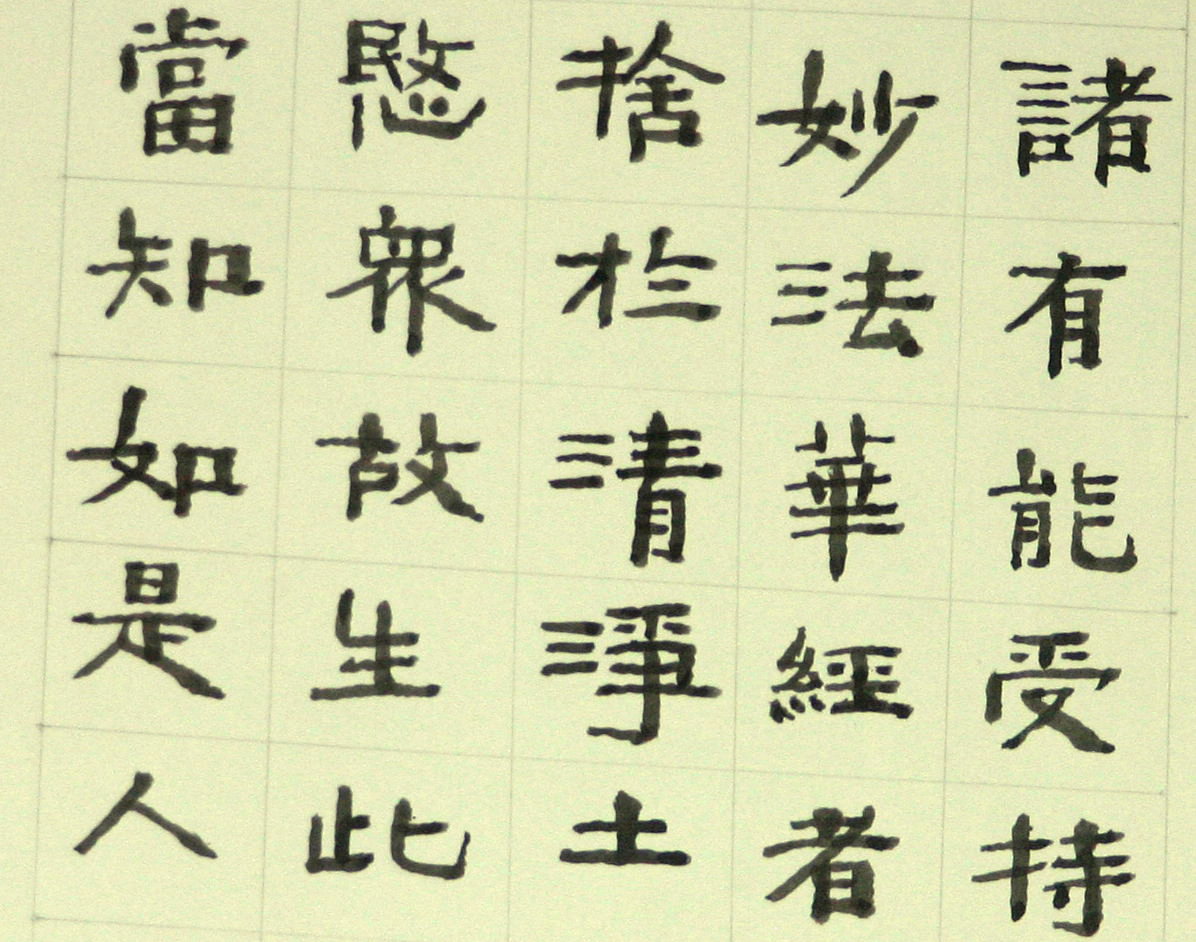 諸有能受持
妙法華經者
捨於清淨土
愍衆故生此
當知如是人